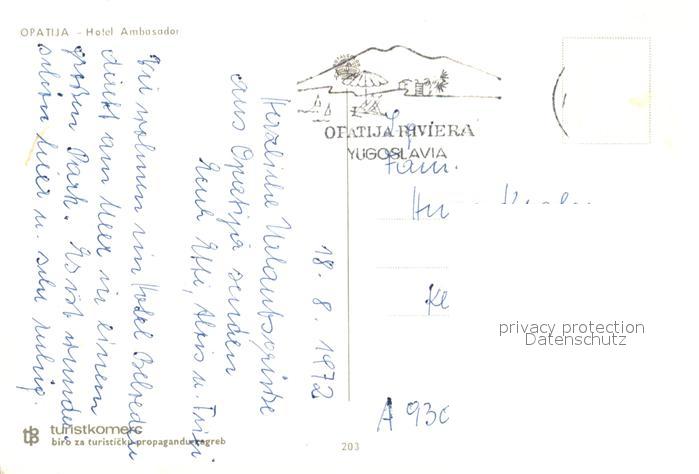 OPATIJA - Hotel Ambasador
18. 8. 1972
Herzliche Urlaubsgrüsse
aus Opatija senden
Euch Effi, Alois u. Trixi
Wir wohnen im Hotel Belvedere
direkt am Meer in einem
großen Park. Es ist wunder
schön hier u. sehr ruhig.
OPATIJA RIVIERA
YUGOSLAVIA
Fam.
A 930
turistkomerc
biro za turističku propagandu zagreb
203
privacy protection
Datenschutz